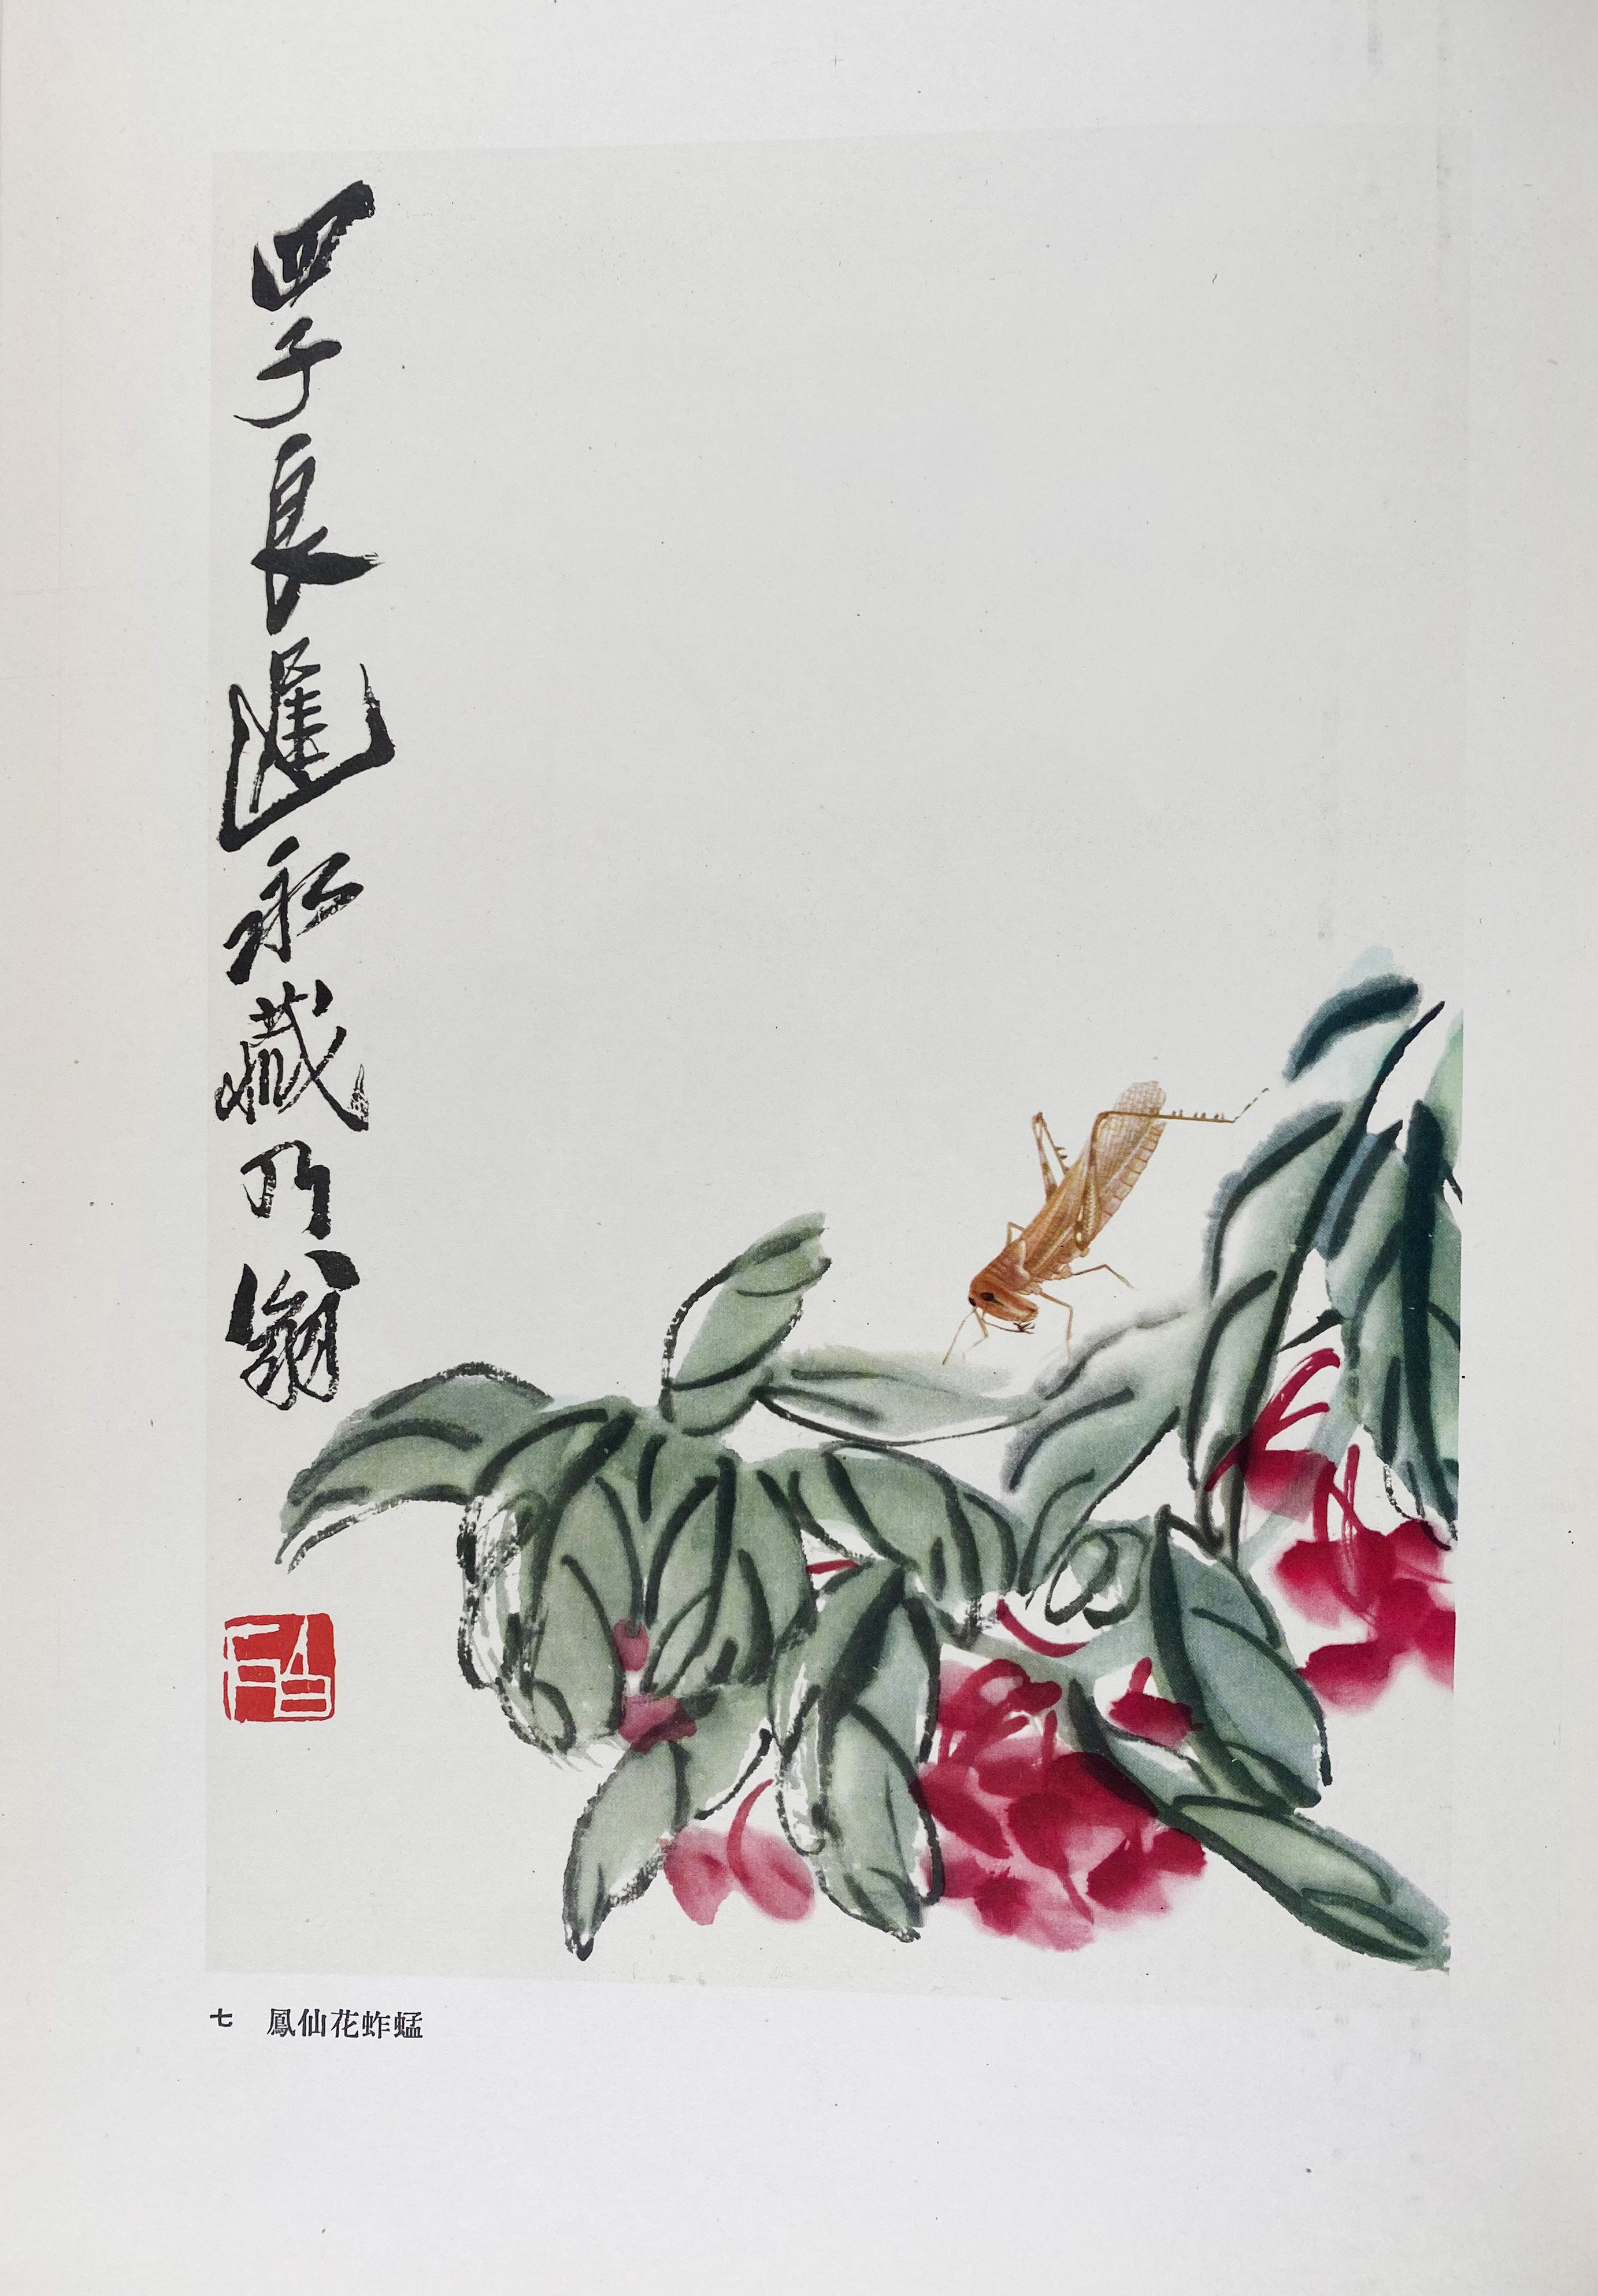 四子良遲永藏乃翁
白石
七 鳳仙花蚱蜢